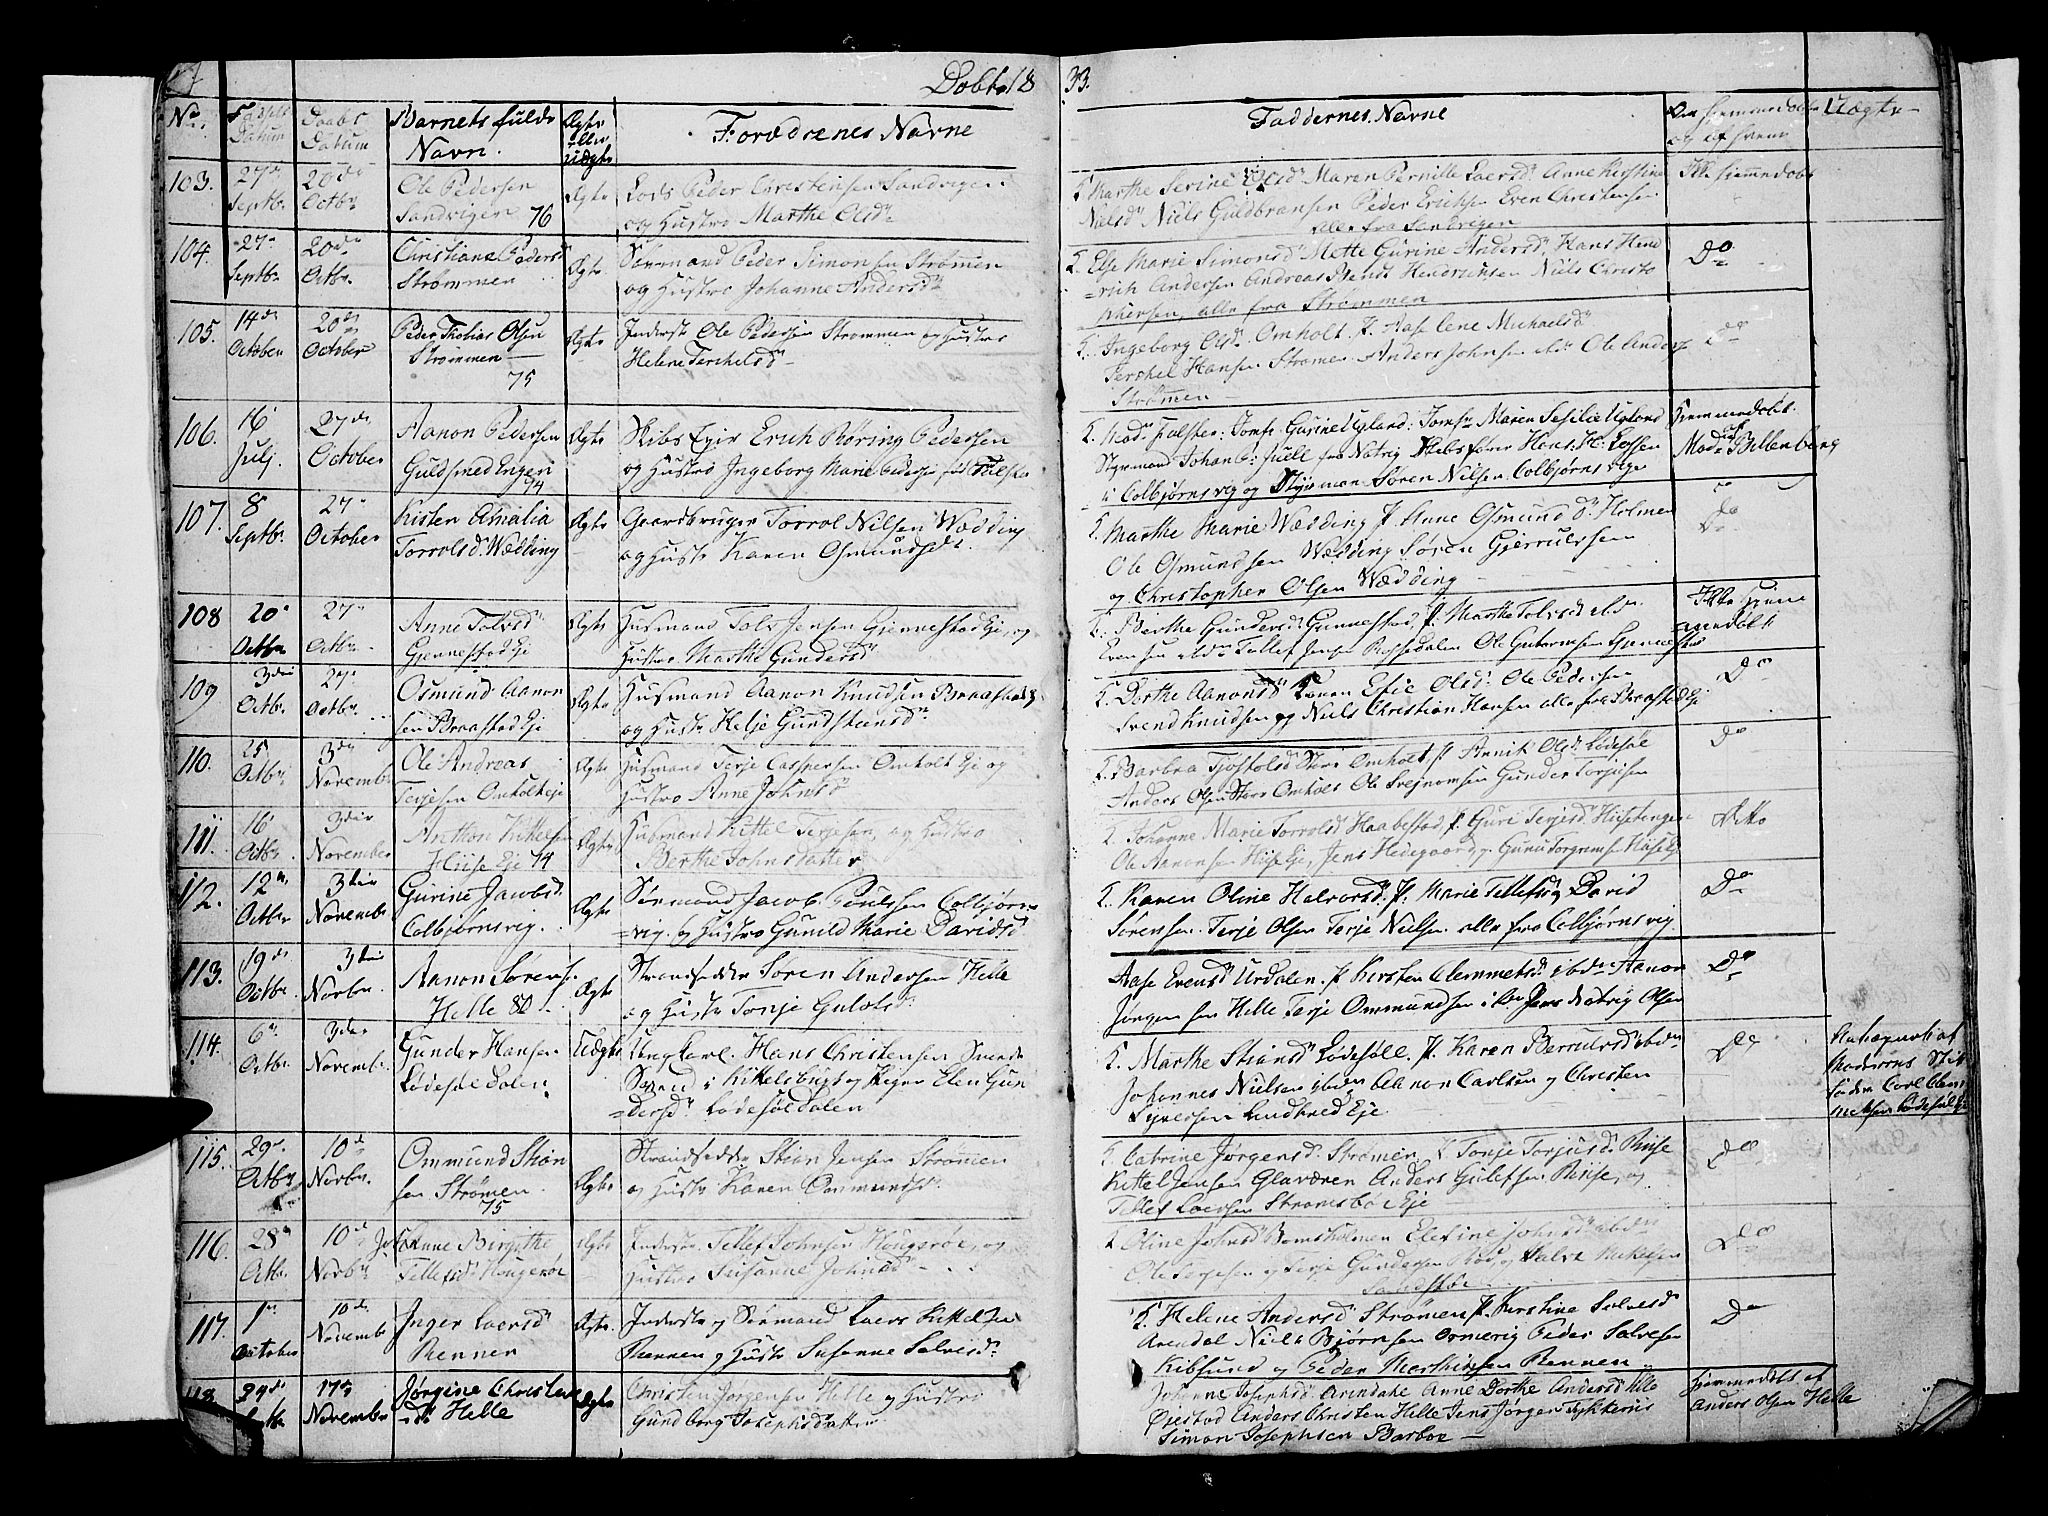 Døbte 1833.
No.
Fødsels Datum
Daabs Datum
Barnets fulde Navn.
Ægte eller uægte
Forældrenes Navne
Faddernes Navne
Om hjemmedøbt og af hvem
Uægte
103.
27de Septbr.
20de Octbr.
Ole Pedersen
Sandvigen 76
Ægte
Lods Peder Christensen Sandvigen
og Hustro Marthe Olsd.
K. Marthe Serine Olsd. Maren Pernille Laersd. Anne Kirstine
Nielsd. Niels Guldbransen Peder Erichsen Even Christensen
alle fra Sandvigen
Ikke hjemmedøbt
104.
27 Septbr.
20de Octbr.
Christiane Pedersd.
Strømmen
Ægte
Sørmand Peder Simonsen Strømen
og Hustro Johanne Andersd.
K. Else Marie Simonsd. Mette Gurine Andersd. Hans Hend
=rich Andersen Andreas Bendt Hendrichsen Niels Christo
phersen, alle fra Strømmen
Do
105.
14de October
20de October
Peder Tobias Olsen
Strømmen
75
Ægte
Inderste Ole Pedersen Strømmen og Hustro
Helene Terchelsd.
K. Ingeborg Olsd. Omholt. P. Aase Lene Michaelsd.
Terchel Hansen Strømen Anders Johnsen Ole Anders
Strømen
Do
106.
16 Julj.
27de October
Aanon Pedersen
Guldsmed Engen
74
Ægte
Skibs Eyer Erich Børing Pedersen
og Hustro Ingeborg Marie Pedersen født Falster
K. Mad. Falster: Jomf. Gurine Ugland: Jomfr. Maren Sesilie Ugland
Styrmand Johan fra Natvig Skibsfører Hans H: Lassen
i Colbjørnsvig og Styrman Søren Nilsen Colbjørnsvig
Hjemmedøbt.
Mad. Billenberg
107.
8 Septbr.
27 October
Kisten Amalia
Torrolsd. Wædding
Ægte
Gaardbruger Torrol Nilsen Wædding
og Hustr Karen Osmundsdt.
K. Marthe Marie Wædding P. Anne Osmundsd. Holmen
Ole Osmundsen Wædding Søren Gjerrulssen
og Christopher Olsen Wædding
Do
108
20 Octbr
27 Octbr.
Anne Tolvsd.
Gjennestad Eje
Ægte
Husmand Tolv Jensen Gjennestad Eje, og
Hustro Marthe Gundersd.
K. Berthe Gundersd. Gennestad, P. Marthe Tolvsd.
Evensen Tallef Jensen Ole Gutormsen Gjennestad
Ikke Hjemmedøbt
109
3die Octbr.
27 Octbr.
Osmund Aanon
sen Braastad Eje
Ægte
Husmand Aanon Knudsen Braastad Ej
og Hustr Helje Gundstensd.
K. Dorthe Aanonsd. Efie Olsd. Ole Pedersen
Svend Knudsen og Niels Christian Hansen alle fra Braastad Eje
Do
110.
25 Octbr.
3die Novembr
Ole Andreas
Terjesen Omholt eje
Ægte
Husmand Terje Caspersen Omholt Eje og
Hustro Anne Johnsd.
K. Barbra Tjostolsd. Omholt P. Annik Olsd. Lødesøl
Anders Olsen Omholt Ole Gunder Torjusen
Do
111.
16 Octbr.
3die November
Anthon Kittelsen
Hiise Eje 74
Ægte
Husmand Kittel Terjesen, og Hustro
Berthe Johnsdatter
K. Johanne Marie Torrolsd. Haabestad, P. Guri Terjesd. Hiisebergene
Ole Aanonsen Hiise Eje, Jens Hedegaard og Gunu Torgrimsen Hiise Ej
Ditto
112.
12te Octbr
3die Novembr
Gurine Jacobsd.
Colbjørnsvig.
Ægte
Sørmand Jacob Poulssen Colbjørns
=vig. og Hustro Gunild Marie Davidsd
K. Karen Oline Halvorsd. P. Marie Tellefsd. David
Sørensen. Terje Olsen Terje Nielsen. alle fra Colbjørnsvig.
Do
113.
19de Octbr.
3die Novbr.
Aanon Sørens.
Helle 80
Ægte
Strandsidder Soren Andersen Helle
og Hustr Tonje Gulovsd.
Aase Evensd. Urdalen. P. Kirsten Clemmetsd. ibdn Aanon
Jørgensen Helle Terje Ommundsen Jens Natvig Olsen
Do
114.
6te Octbr:
3die Novembr.
Gunder Hansen
Lødesøl Dalen
Uægte
Ungkarl. Hans Christensen Smeds
Svend i Kittelsbugt og Pigen Elen Gun
=dersd. Lødesøldalen
K. Marthe Stiansd. Lødesøll. P. Karen Berrulsd. ibdn
Johannes Nielsen ibdn Aanon Carlsen og Christen
Syvertsen Lindtved Eje.
Do
Moderens Stif
fader Carl Clem
metsen Lødesøl
115.
29de Octbr
10de Novbr.
Ommund Stian
sen Strømen.
75
Ægte
Strandsidder Stian Jensen Strømen
og Hustr Karen Ommundsd.
K. Catrine Jørgensd. Strømen, P. Tonje Torjusd. Riise
Kittel Jensen Glaværen Anders Gulefsen Riise, og
Tellef Laersen Strømsbo Eje
Do
116.
28de Octbr.
10de Novbr.
Johanne Birgithe
Tellefsd. Hougerøe
Ægte
Inderste Tellef Johnsen Hougerøe, og
Hustro Susanne Johnsd.
K. Oline Johnsd. Bomsholmen Elefine Johnsd. ibdn
Ole Terjesen og Terje Gundersen og Salve
Do
117.
1ste October
10de Novembr
Inger Laersd.
Rennen
Ægte
Inderste og Sørmand Laers Kittelsen
Rennen og Hustr Susanne Salvesd.
K. Helene Andersd. Strømen P. Kirstine Salvesd.
Arendal Niels Bjørnsen Peder Salvesen
Kibsund og Peder Marthinsen Rennen
Do
118.
29de Octbr
17de Novembr
Jørgine Christens
dt Helle
Ægte
Christen Jørgensen Helle og Hustro
Gundborg Josephsdatter
Johanne Josephsd. Arendahl Anne Dorthe Andersd. Helle
Øiestad Anders Christen Helle Jens Jørgen
Simon Josephsen Barboe
Hjemmedøbt af
Anders Olsen Helle